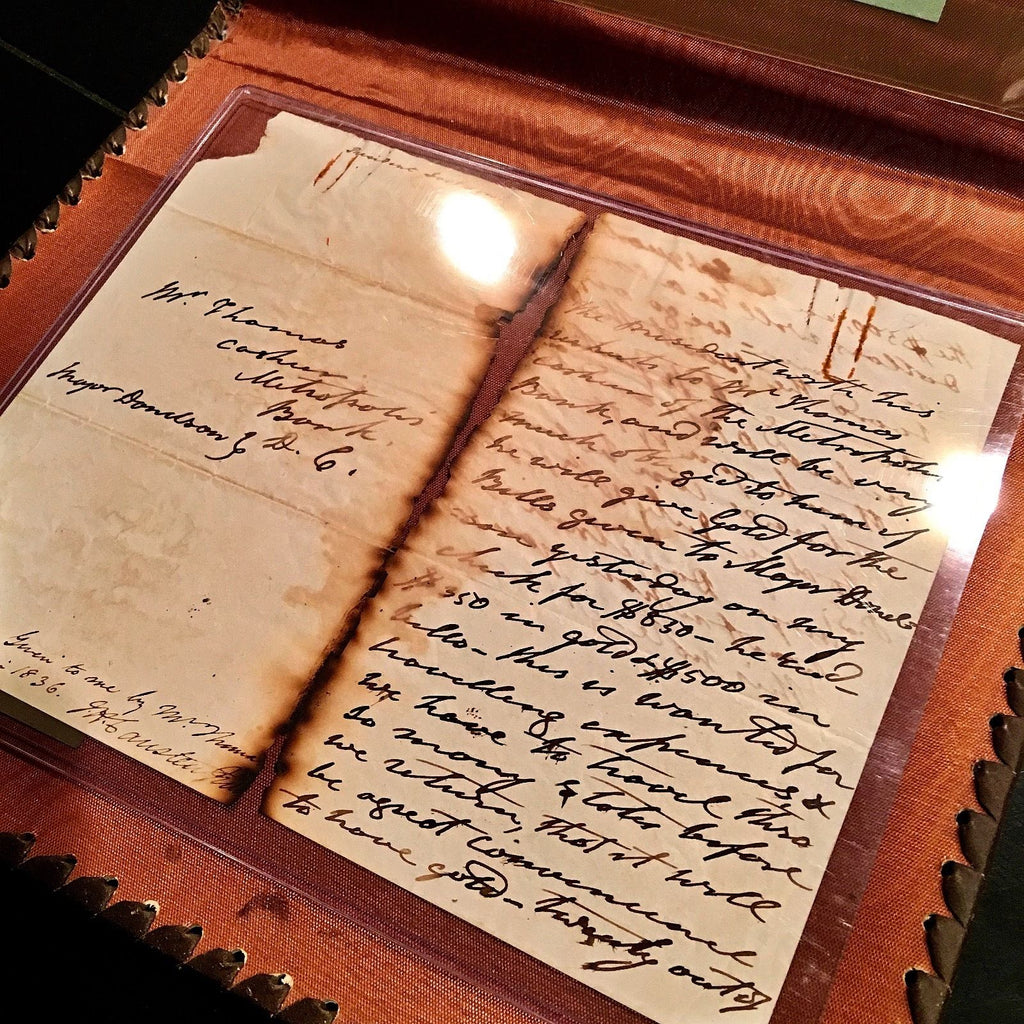 Mr. Thomas
Cashier
Metropolis
Bank.
Major Donelson } D. C.
Given to me by Mr.
1836.
The President with his
to Mr Thomas
Cashier of the Metropolis
Bank, and will be very
much obliged to him if
he will give Gold for the
Bills given to Major Donel-
son yesterday on my
check for $850- he recd-
$350 in gold & $500 in
bills- this is wanted for
travelling expences &
we have to travel thro
so many States before
we return, that it will
be a great convenience
to have gold- twenty out of